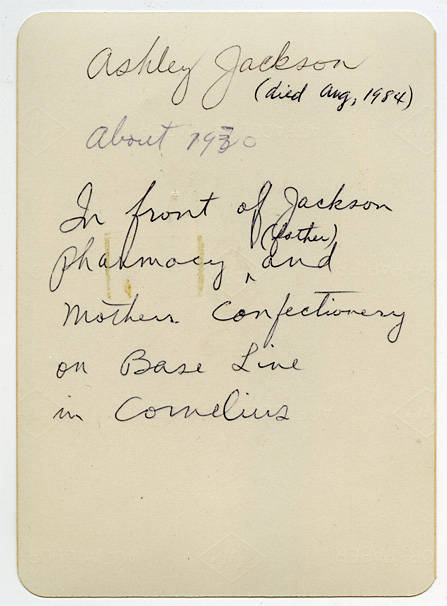 Ashley Jackson
(died Aug, 1984)
About 1930
In front of Jackson
(father)
pharmacy, and
Mothers Confectionery
on Base Line
in Cornelius